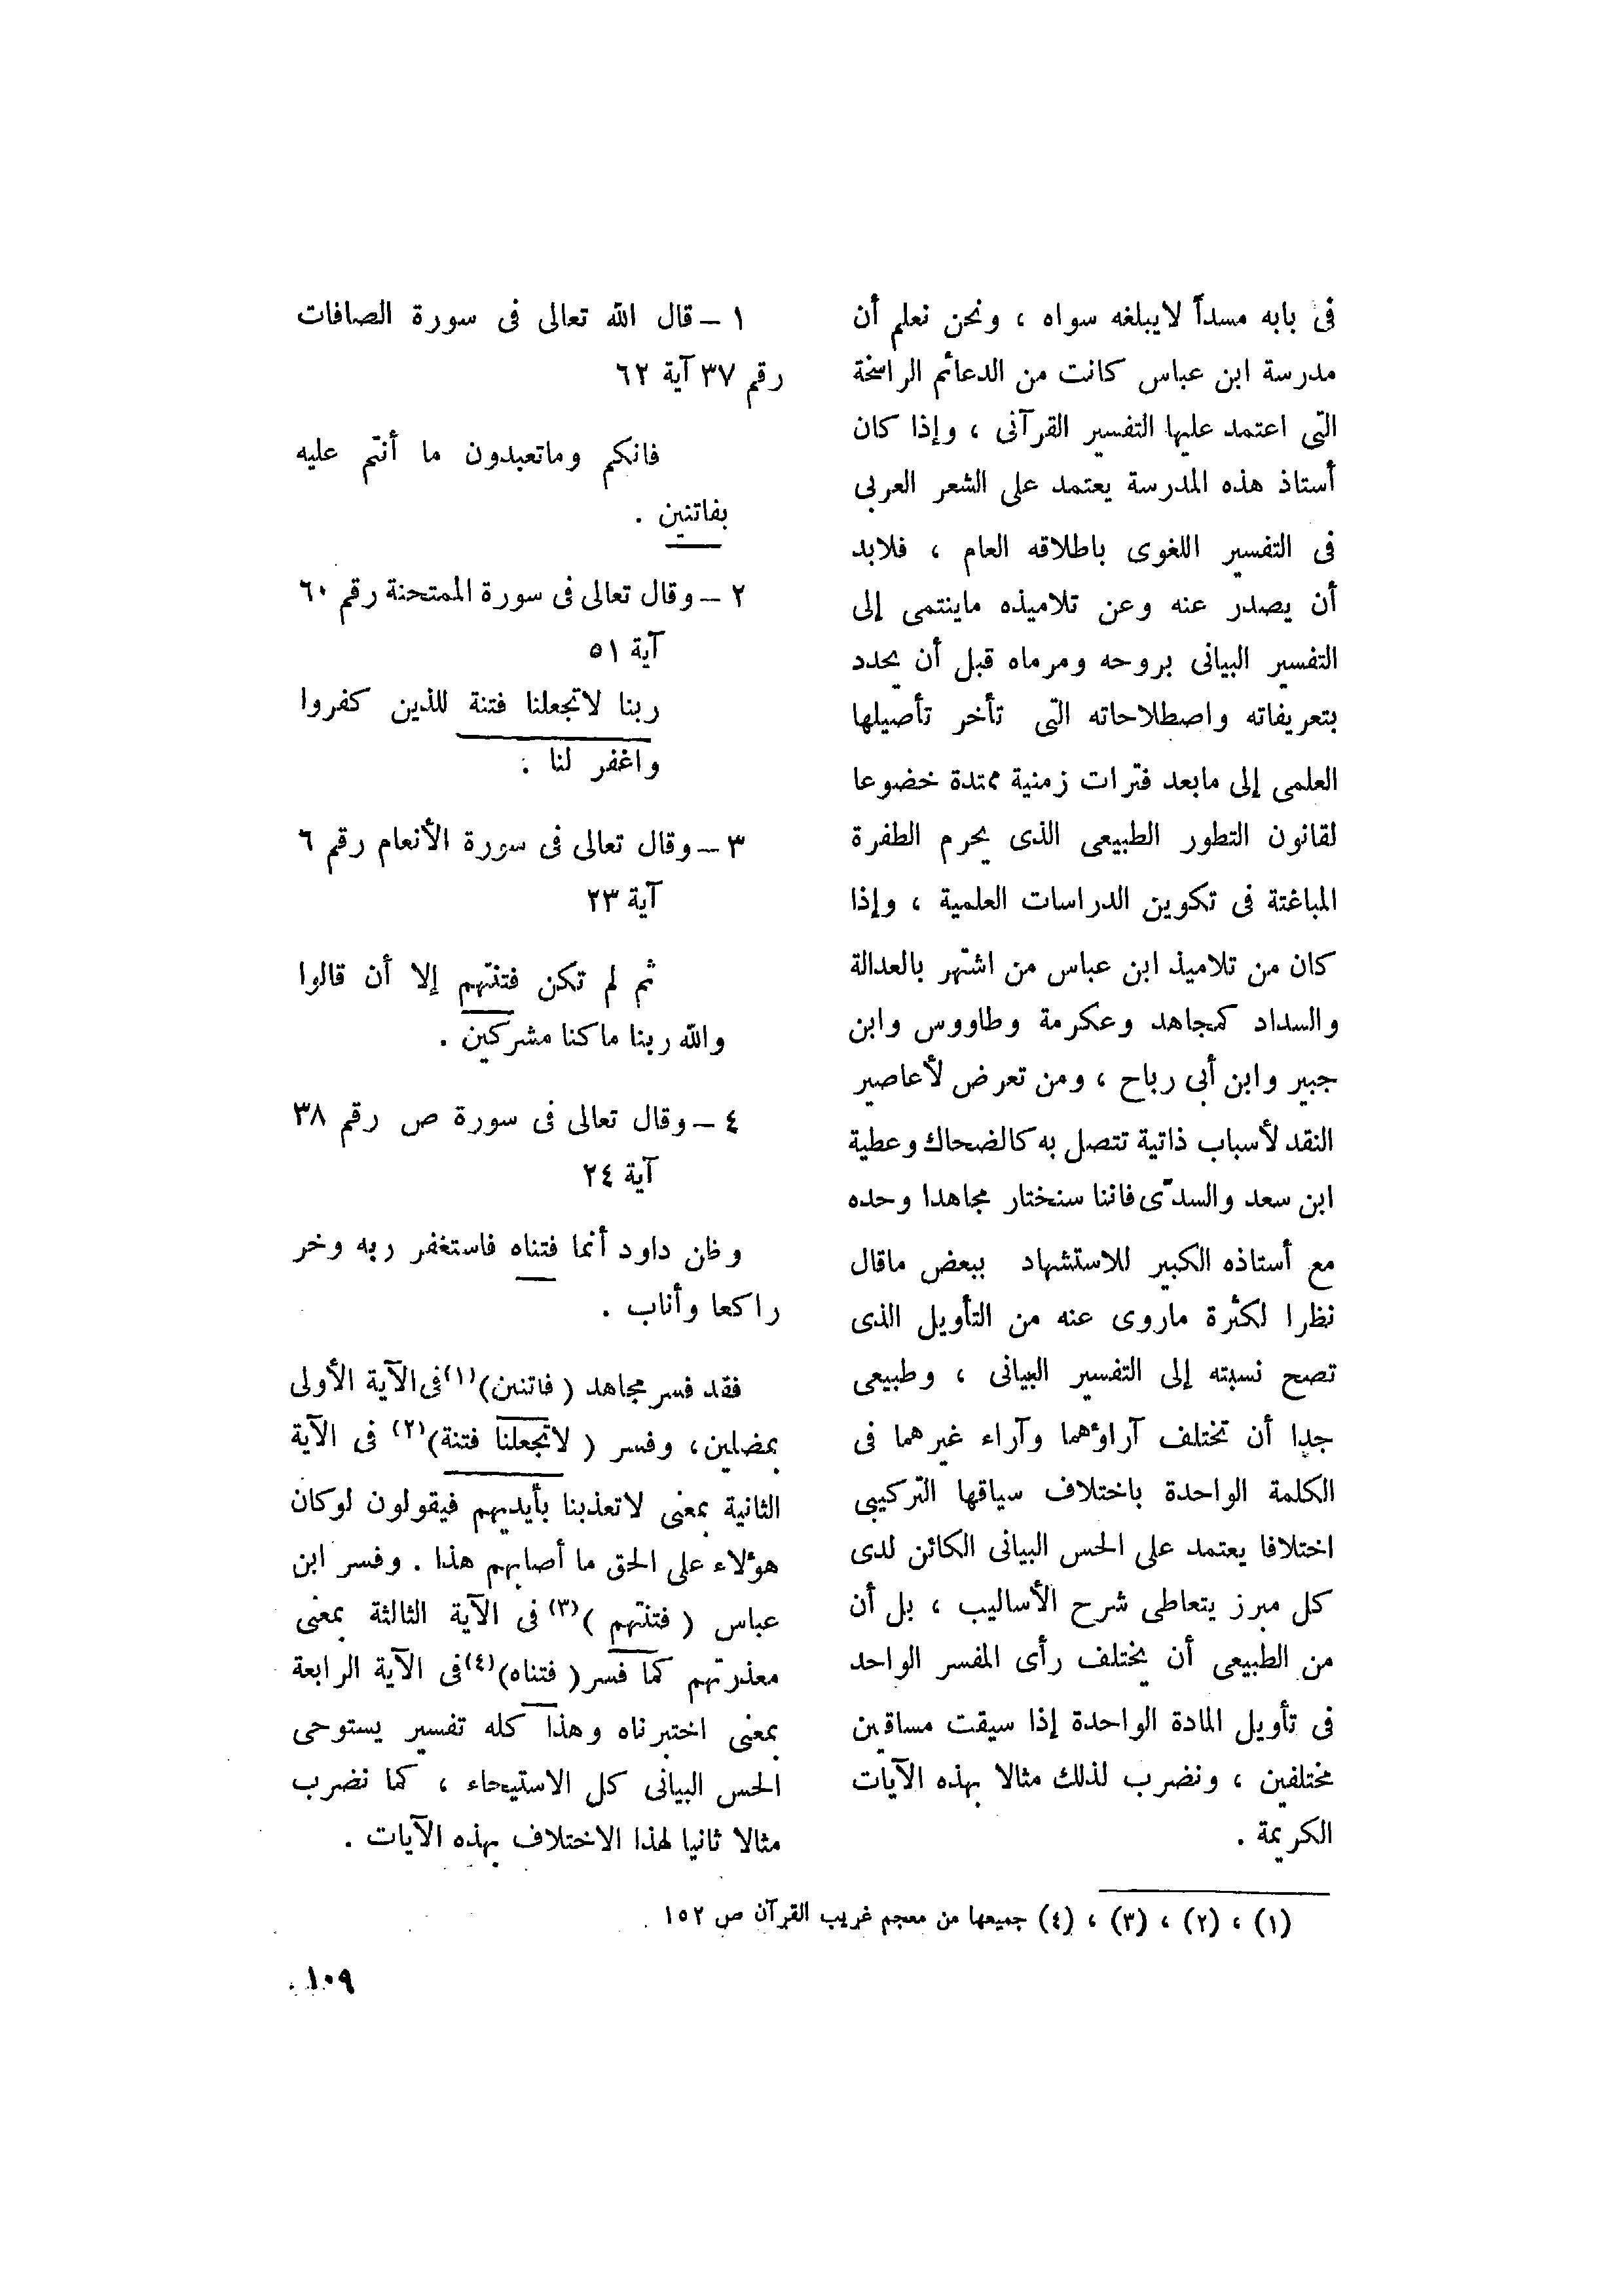 فى بابه مسدأ لايبلغه سواه ، ونحن نعلم أن
مدرسة ابن عباس كانت من الدعائم الراسخة
التى اعتمد عليها التفسير القرآنى ، وإذا كان
أستاذ هذه المدرسة يعتمد على الشعر العربى
فى التفسير اللغوى باطلاقه العام ، فلابد
أن يصدر عنه وعن تلاميذه ماينتمى إلى
التفسير البيانى بروحه ومرماه قبل أن يحدد
بتعريفاته واصطلاحاته التى تأخر تأصيلها
العلمى إلى مابعد فترات زمنية ممتدة خضوعا
لقانون التطور الطبيعى الذى يحرم الطفرة
المباغتة فى تكوين الدراسات العلمية ، وإذا
كان من تلاميذ ابن عباس من اشتهر بالعدالة
والسداد كمجاهد وعكرمة وطاووس وابن
جبير وابن أبى رباح ، ومن تعرض لأعاصير
النقد لأسباب ذاتية تتصل به كالضحاك وعطية
ابن سعد والسدّى فاننا سنختار مجاهدا وحده
مع أستاذه الكبير للاستشهاد ببعض ماقال
نظرا لكثرة ماروى عنه من التأويل الذى
تصح نسبته إلى التفسير البيانى ، وطبيعى
جدا أن تختلف آراؤهما وآراء غيرهما فى
الكلمة الواحدة باختلاف سياقها التركيبى
اختلافا يعتمد على الحس البيانى الكائن لدى
كل مبرز يتعاطى شرح الأساليب ، بل أن
من الطبيعى أن يختلف رأى المفسر الواحد
فى تأويل المادة الواحدة إذا سيقت مساقين
مختلفين ، ونضرب لذلك مثالا بهذه الآيات
الكريمة .
١ – قال الله تعالى فى سورة الصافات
رقم ٣٧ آية ٦٢
فانكم وماتعبدون ما أنتم عليه
بفاتنين .
٢ – وقال تعالى فى سورة الممتحنة رقم ٦٠
آية ٥١
ربنا لاتجعلنا فتنة للذين كفروا
واغفر لنا .
٣ – وقال تعالى فى سورة الأنعام رقم ٦
آية ٢٣
ثم لم تكن فتنتهم إلا أن قالوا
والله ربنا ماكنا مشركين .
٤ – وقال تعالى فى سورة ص رقم ٣٨
آية ٢٤
وظن داود أنما فتناه فاستغفر ربه وخر
راكعا وأناب .
فقد فسر مجاهد ( فاتنين)(١) فى الآية الأولى
بمضلين، وفسر ( لاتجعلنا فتنة)(٢) فى الآية
الثانية بمعنى لاتعذبنا بأيديهم فيقولون لوكان
هؤلاء على الحق ما أصابهم هذا . وفسر ابن
عباس ( فتنتهم )(٣) فى الآية الثالثة بمعنى
معذرتهم كما فسر( فتناه)(٤) فى الآية الرابعة
بمعنى اختبرناه وهذا كله تفسير يستوحى
الحس البيانى كل الاستيحاء ، كما نضرب
مثالا ثانيا لهذا الاختلاف بهذه الآيات .
(١) ، (٢) ، (٣) ، (٤) جميعها من معجم غريب القرآن ص ١٥٢
١٠٩